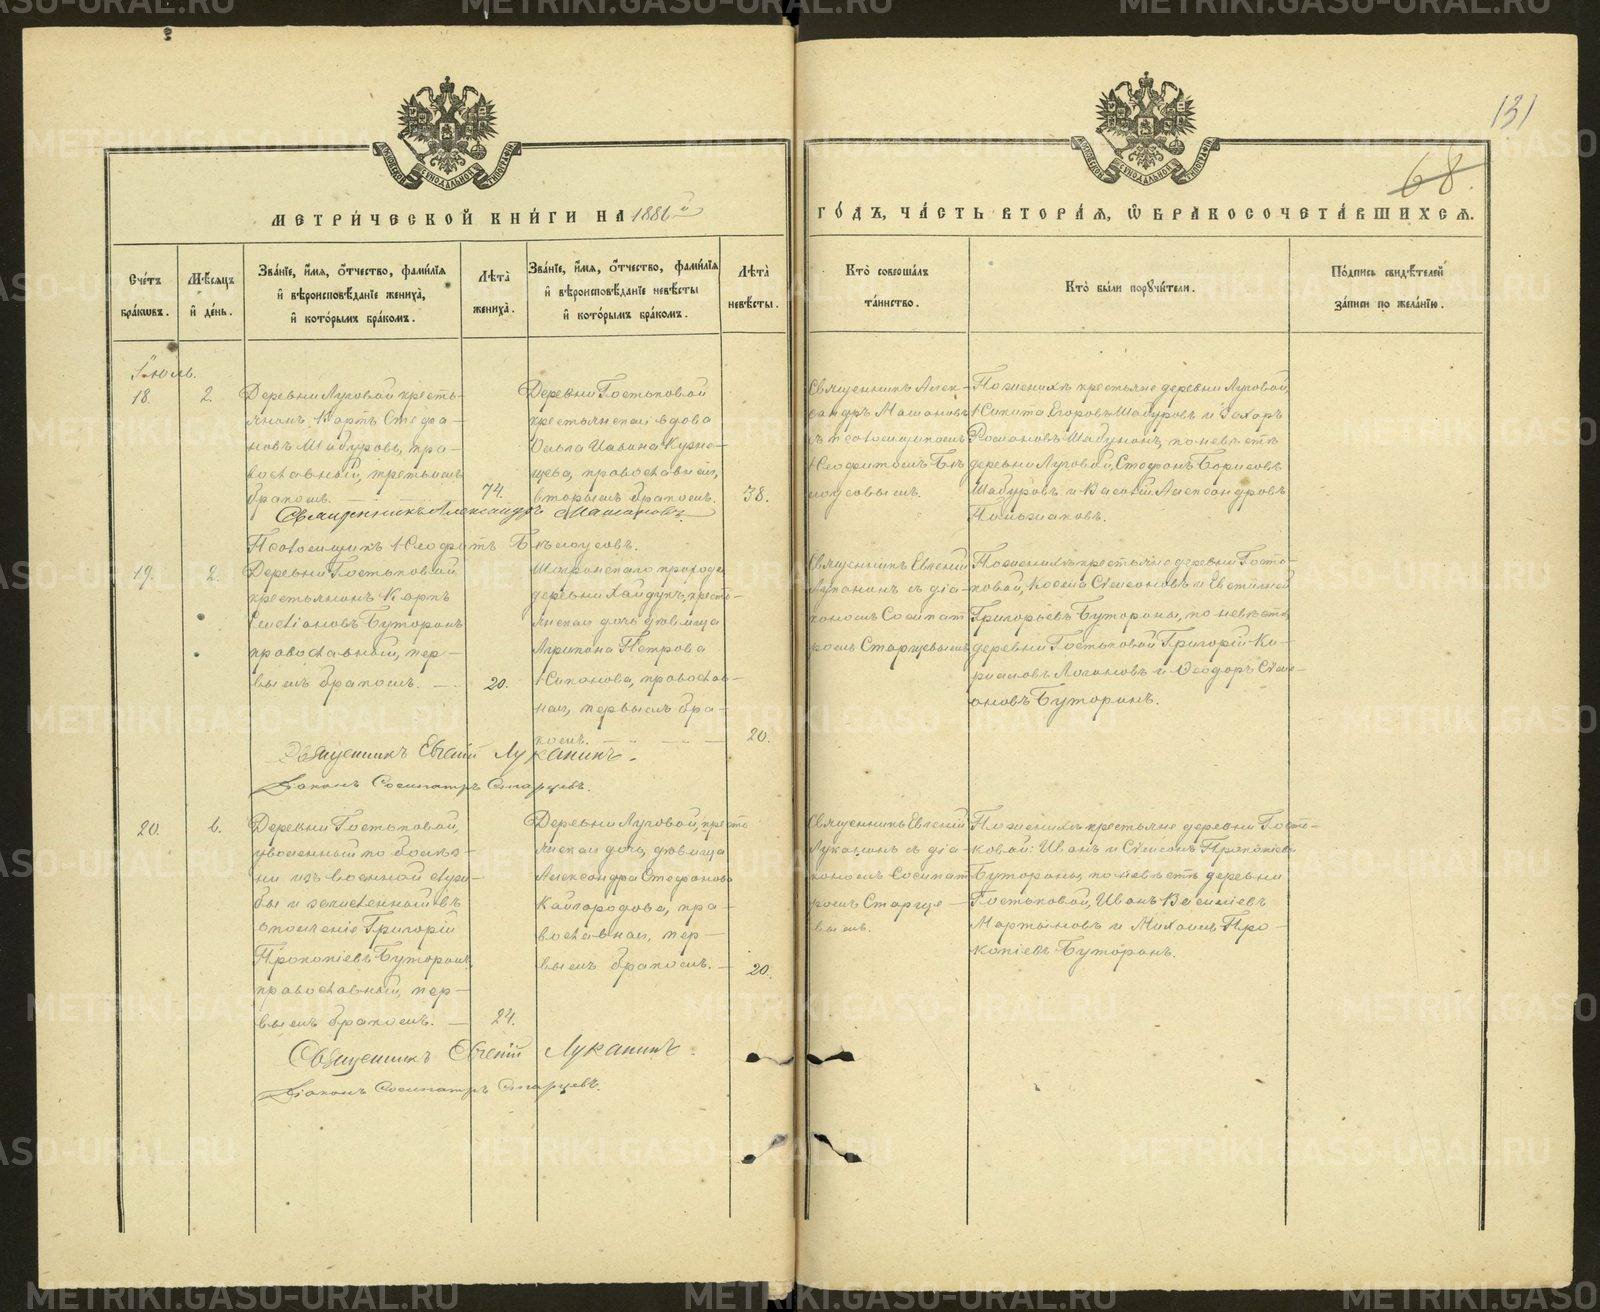 131
68.
МЕТРИ́ЧЕСКОЙ КНИ́ГИ НА 1886й
ГО́ДЪ, ЧА́СТЬ ВТОРА́Я, Ѡ҆ БРАКОСОЧЕТА́ВШИХСЯ.
Сче́тъ бра́кѡвъ.
Мѣ́сяцъ и҆ де́нь.
Зва́нїе, и҆́мя, ѻ҆́тчество, фами́лїя
и҆ вѣроисповѣ́данїе жениха̀,
и҆ кото́рымъ бра́комъ.
Лѣ́та жениха̀.
Зва́нїе, и҆́мя, ѻ҆́тчество, фами́лїя
и҆ вѣроисповѣ́данїе невѣ́сты
и҆ кото́рымъ бра́комъ.
Лѣ́та невѣ́сты.
Кто̀ соверша́лъ
та́инство.
Кто̀ бы́ли порꙋчи́тели.
По́дпись свидѣ́телей
за́писи по жела́нїю.
Іюль.
18.
2.
Деревни Луговой кресть-
янинъ Карпъ Стефа-
новъ Шабуровъ, пра-
вославный, третьимъ
бракомъ.
74.
Деревни Гостьковой
крестьянская вдова
Кузне-
цова, православная,
вторымъ бракомъ.
38.
Священникъ Алек-
сандръ Машановъ
съ псаломщикомъ
Неофитомъ Бѣ-
лоусовымъ.
По женихѣ крестьяне деревни Луговой,
Никита Егоровъ Шабуровъ и Захаръ
Романовъ Шабунинъ, по невѣстѣ
деревни Луговой, Стефанъ Борисовъ
Шабуровъ и Василій Александровъ
Священникъ Александръ Машановъ
Псаломщикъ Неофитъ Бѣлоусовъ.
19.
2.
Деревни Гостьковой
крестьянинъ Карпъ
Буторинъ
православный, пер-
вымъ бракомъ.
20.
прихода
деревни Хайдукъ, кресть-
янская дочь дѣвица
Агрипина Петрова
православ-
ная, первымъ бра-
комъ.
20.
Священникъ Евгеній
Луканинъ съ діа-
кономъ Сосипат-
ромъ Старцевымъ
По женихѣ крестьяне деревни Гость-
ковой, Косма Симеоновъ и Евстигней
Григорьевъ Буторины, по невѣстѣ
деревни Гостьковой Григорій Ки-
риловъ Логиновъ и Ѳеодоръ Симе-
оновъ Буторинъ.
Священникъ Евгеній Луканинъ.
Діаконъ Сосипатръ Старцевъ.
20.
6.
Деревни Гостьковой,
уволенный по болѣз-
ни изъ военной служ-
бы и зачисленный въ
ополченіе Григорій
Прокопіевъ Буторинъ,
православный, пер-
вымъ бракомъ.
24.
Деревни Луговой, кресть-
янская дочь, дѣвица
Александра Стефанова
Кайгородова, пра-
вославная, пер-
вымъ бракомъ.
20.
Священникъ Евгеній
Луканинъ съ діа-
кономъ Сосипат-
ромъ Старце-
вымъ.
По женихѣ крестьяне деревни Гость-
ковой: Иванъ и Симеонъ Прокопіевы
Буторины, по невѣстѣ деревни
Гостьковой, Иванъ Василіевъ
Мартыновъ и Михаилъ Про-
копіевъ Буторинъ.
Священникъ Евгеній Луканинъ.
Діаконъ Сосипатръ Старцевъ.
METRIKI.GASO-URAL.RU